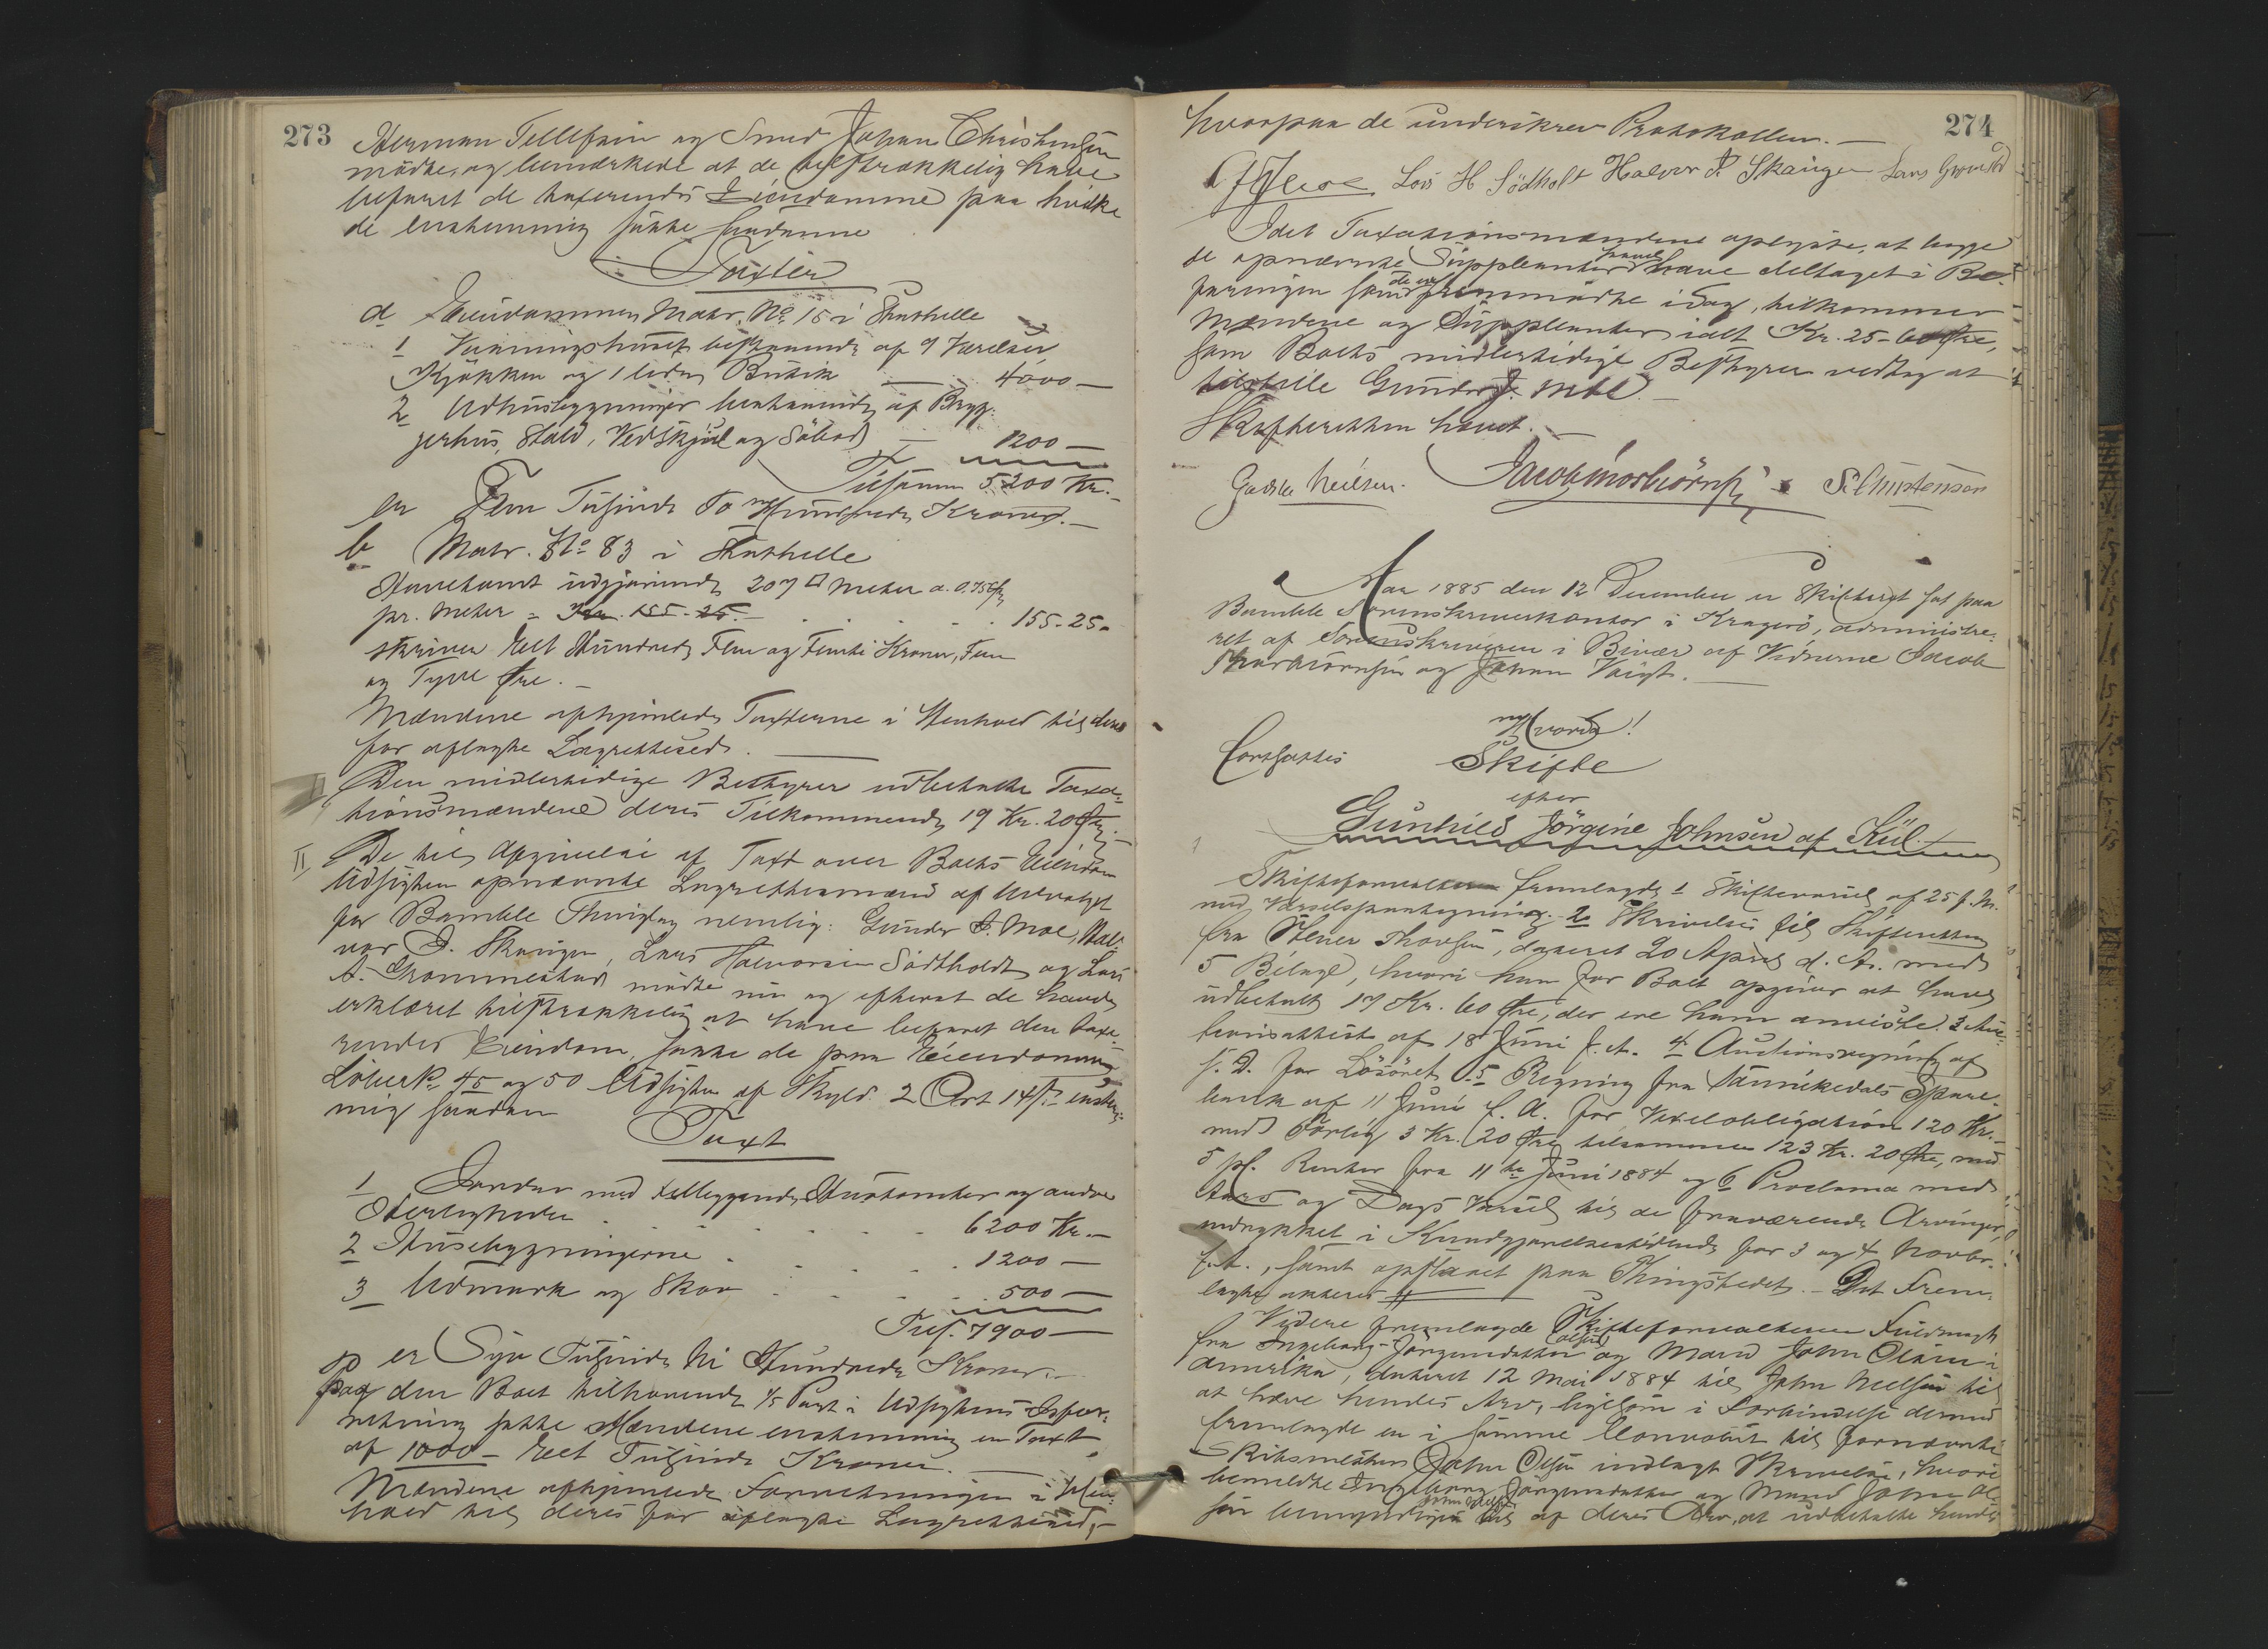 273
Herman Tellefsen og Smed Johan Christensen
mødte, og bemærkede at de tilstrækkelig have
befaret de taxerendes Eiendomme paa hvilke
de enstemmig satte saadanne
Taxter
a Eiendommen Matr. No. 15 i Stathelle
1 Vaaningshuset bestaaende af 9 Værelser,
Kjøkken og 1 liden Butik — 4000 —
2 Udhusbygninger bestaaende af Bryg-
gerhus, Stald, Vedskjul og Søbod — 1200 —
Tilsammen 5200 Kr.
er Fem Tusinde To Hundrede Kroner. —
b Matr. No 83 i Stathelle
Havetomt udgjørende 207 □ Meter a. 0.75 Øre
pr. Meter = Kr. 155-25. — 155-25-
skriver Eet Hundrede Fem og Femti Kroner, Fem
og Tyve Øre. —
Mændene afhjemlede Taxterne i Henhold til deres
før aflagte Lagrettesed.
Den midlertidige Bestyrer udbetalte Taxa-
tionsmændene deres Tilkommende 19 Kr. 20 Øre. —
II De til Afgivelse af Taxt over Boets Eiendom
Udsigten opnævnte Lagrettesmænd af Udvalget
for Bamble Thinglag nemlig: Gunder J. Moe, Hal-
vor J. Skaugen, Lars Halvorsen Sødtholdt og Lars
A. Grommestad mødte nu og efterat de havde
erklæret tilstrækkelig at have befaret den taxe-
rendes Eiendom, satte de paa Eiendommen
Løbenr. 45 og 50 Udsigten af Skyld 2 Ort 14 ß enstem-
mig saadan
Taxt
1 Jorden med tilliggende Hustomter og andre
Herligheder . . . 6200 Kr. —
2 Husebygningerne . . . 1200 —
3 Udmark og Skov . . . 500 —
Tils. 7900 —
er Syv Tusinde Ni Hundrede Kroner. —
paa den Boet tilhørende 1/5 Part i Udsigtens
satte Mændene enstemmig en Taxt
af 1000 — Eet Tusinde Kroner.
Mændene afhjemlede Forretningen i Hen-
hold til deres før aflagte Lagrettesed, —
274
hvorpaa de underskrev Protokollen. —
Lars H Södholt Halvor J. Skaugen Lars
Idet Taxationsmændene oplyste, at begge
de opnævnte Suppleanter havde deltaget i Be-
faringen samt de nu fremmødte idag, tilkommer
Mændene og Suppleanter ialt Kr. 25-60 Øre,
som Boets midlertidige Bestyrer vedtog at
tilstille Gunder J. Moe. —
Skifteretten hævet. —
Neilsen. Jacob Thorbiörnsen S. Christensen
Aar 1885 den 12 December er Skifteret sat paa
Bamble Sorenskriverkontor i Kragerø, administre-
ret af Sorenskriveren i Bivær af Vidnerne Jacob
Thorbiörnsen og Johan Voigt. —
Hvorda!
Fortsattes Skifte
efter
Gunhild Jørgine Johnsen af Kiil
Skifteforvalteren fremlagde 1 Skiftevarsel af 25 f. M.
med Varselspaategning. 2 Skrivelse til Skifteretten
fra Stener Thorsen, dateret 20 April d. A. med
5 Bilage, hvori han for Boet opgiver at have
udbetalt 17 Kr. 60 Øre, der ere ham anviste. 3
af 18 Juni f. A. 4 Auctionsregning af
s. D. for Løsøret. 5 Regning fra Sannikedals Spare-
bank af 11 Juni f. A. for Vexelobligation 120 Kr. —
med 3 Kr. 20 Øre tilsammen 123 Kr. 20 Øre, med
5 pC. Renter fra 11te Juni 1884 og 6 Proclama med
Aars og Dags Varsel til de fraværende Arvinger,
indrykket i Kundgjørelsestidende for 3 og 4 Novbr.
f. A., samt opslaaet paa Thingstedet. — Det Frem-
lagte
Videre fremlagde Skifteforvalteren Fuldmagt
fra Ingeborg Jørgensdatter og Mand John Olsen i
Amerika, dateret 12 Mai 1884 til John Neilsen til
at hæve hendes Arv, ligesom i Forbindelse dermed
fremlagde en i samme Convolut til fornævnte
John Olsen indlagt Skrivelse, hvori
bemeldte Ingeborg Jørgensdatter og Mand John Ol-
sen John Neilsen af deres Arv, at udbetale hendes